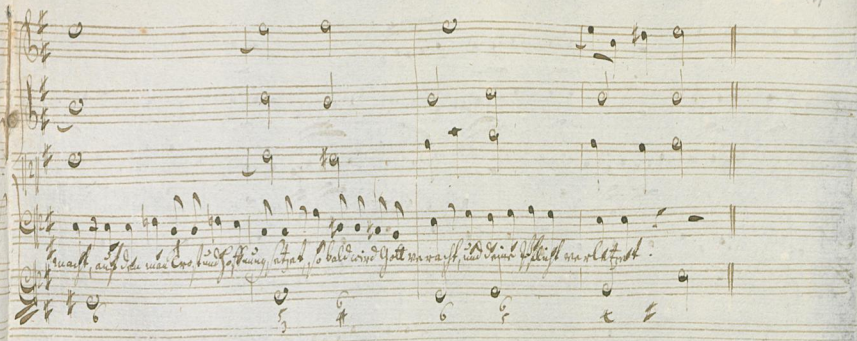 macht, auf den man Trost und Hoffnung setzet, so bald wird Gott veracht, und deine Pflicht verletzet.
6 5 6 6 6
3 # 5 #